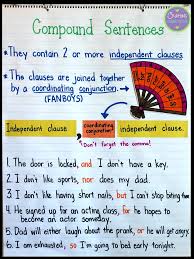 Compound Sentences
• They contain 2 or more independent clauses.
• The clauses are joined together
by a coordinating conjunction.
(FANBOYS)
Independent clause
,
coordinating conjunction
independent clause.
Don't forget the comma!
1. The door is locked, and I don't have a key.
2. I don't like sports, nor does my dad.
3. I don't like having short nails, but I can't stop biting
4. He signed up for an acting class, for he hopes to
become an actor someday.
5. Dad will either laugh about the prank, or he will get angry.
6. I am exhausted, so I'm going to bed early tonight.